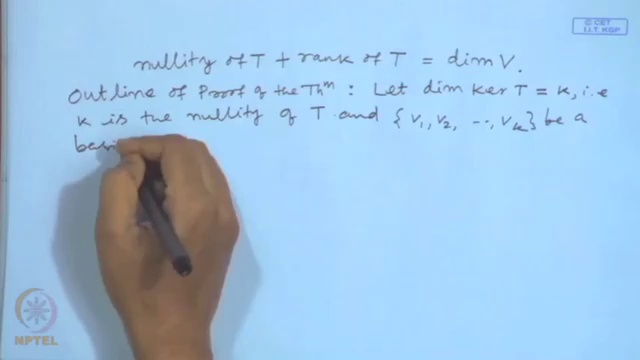 © CET
I.I.T. KGP
nullity of T + rank of T = dim V.
Outline of Proof of the Thm : Let dim ker T = k, i.e
k is the nullity of T and {v1, v2, ..., vk} be a
basi
NPTEL